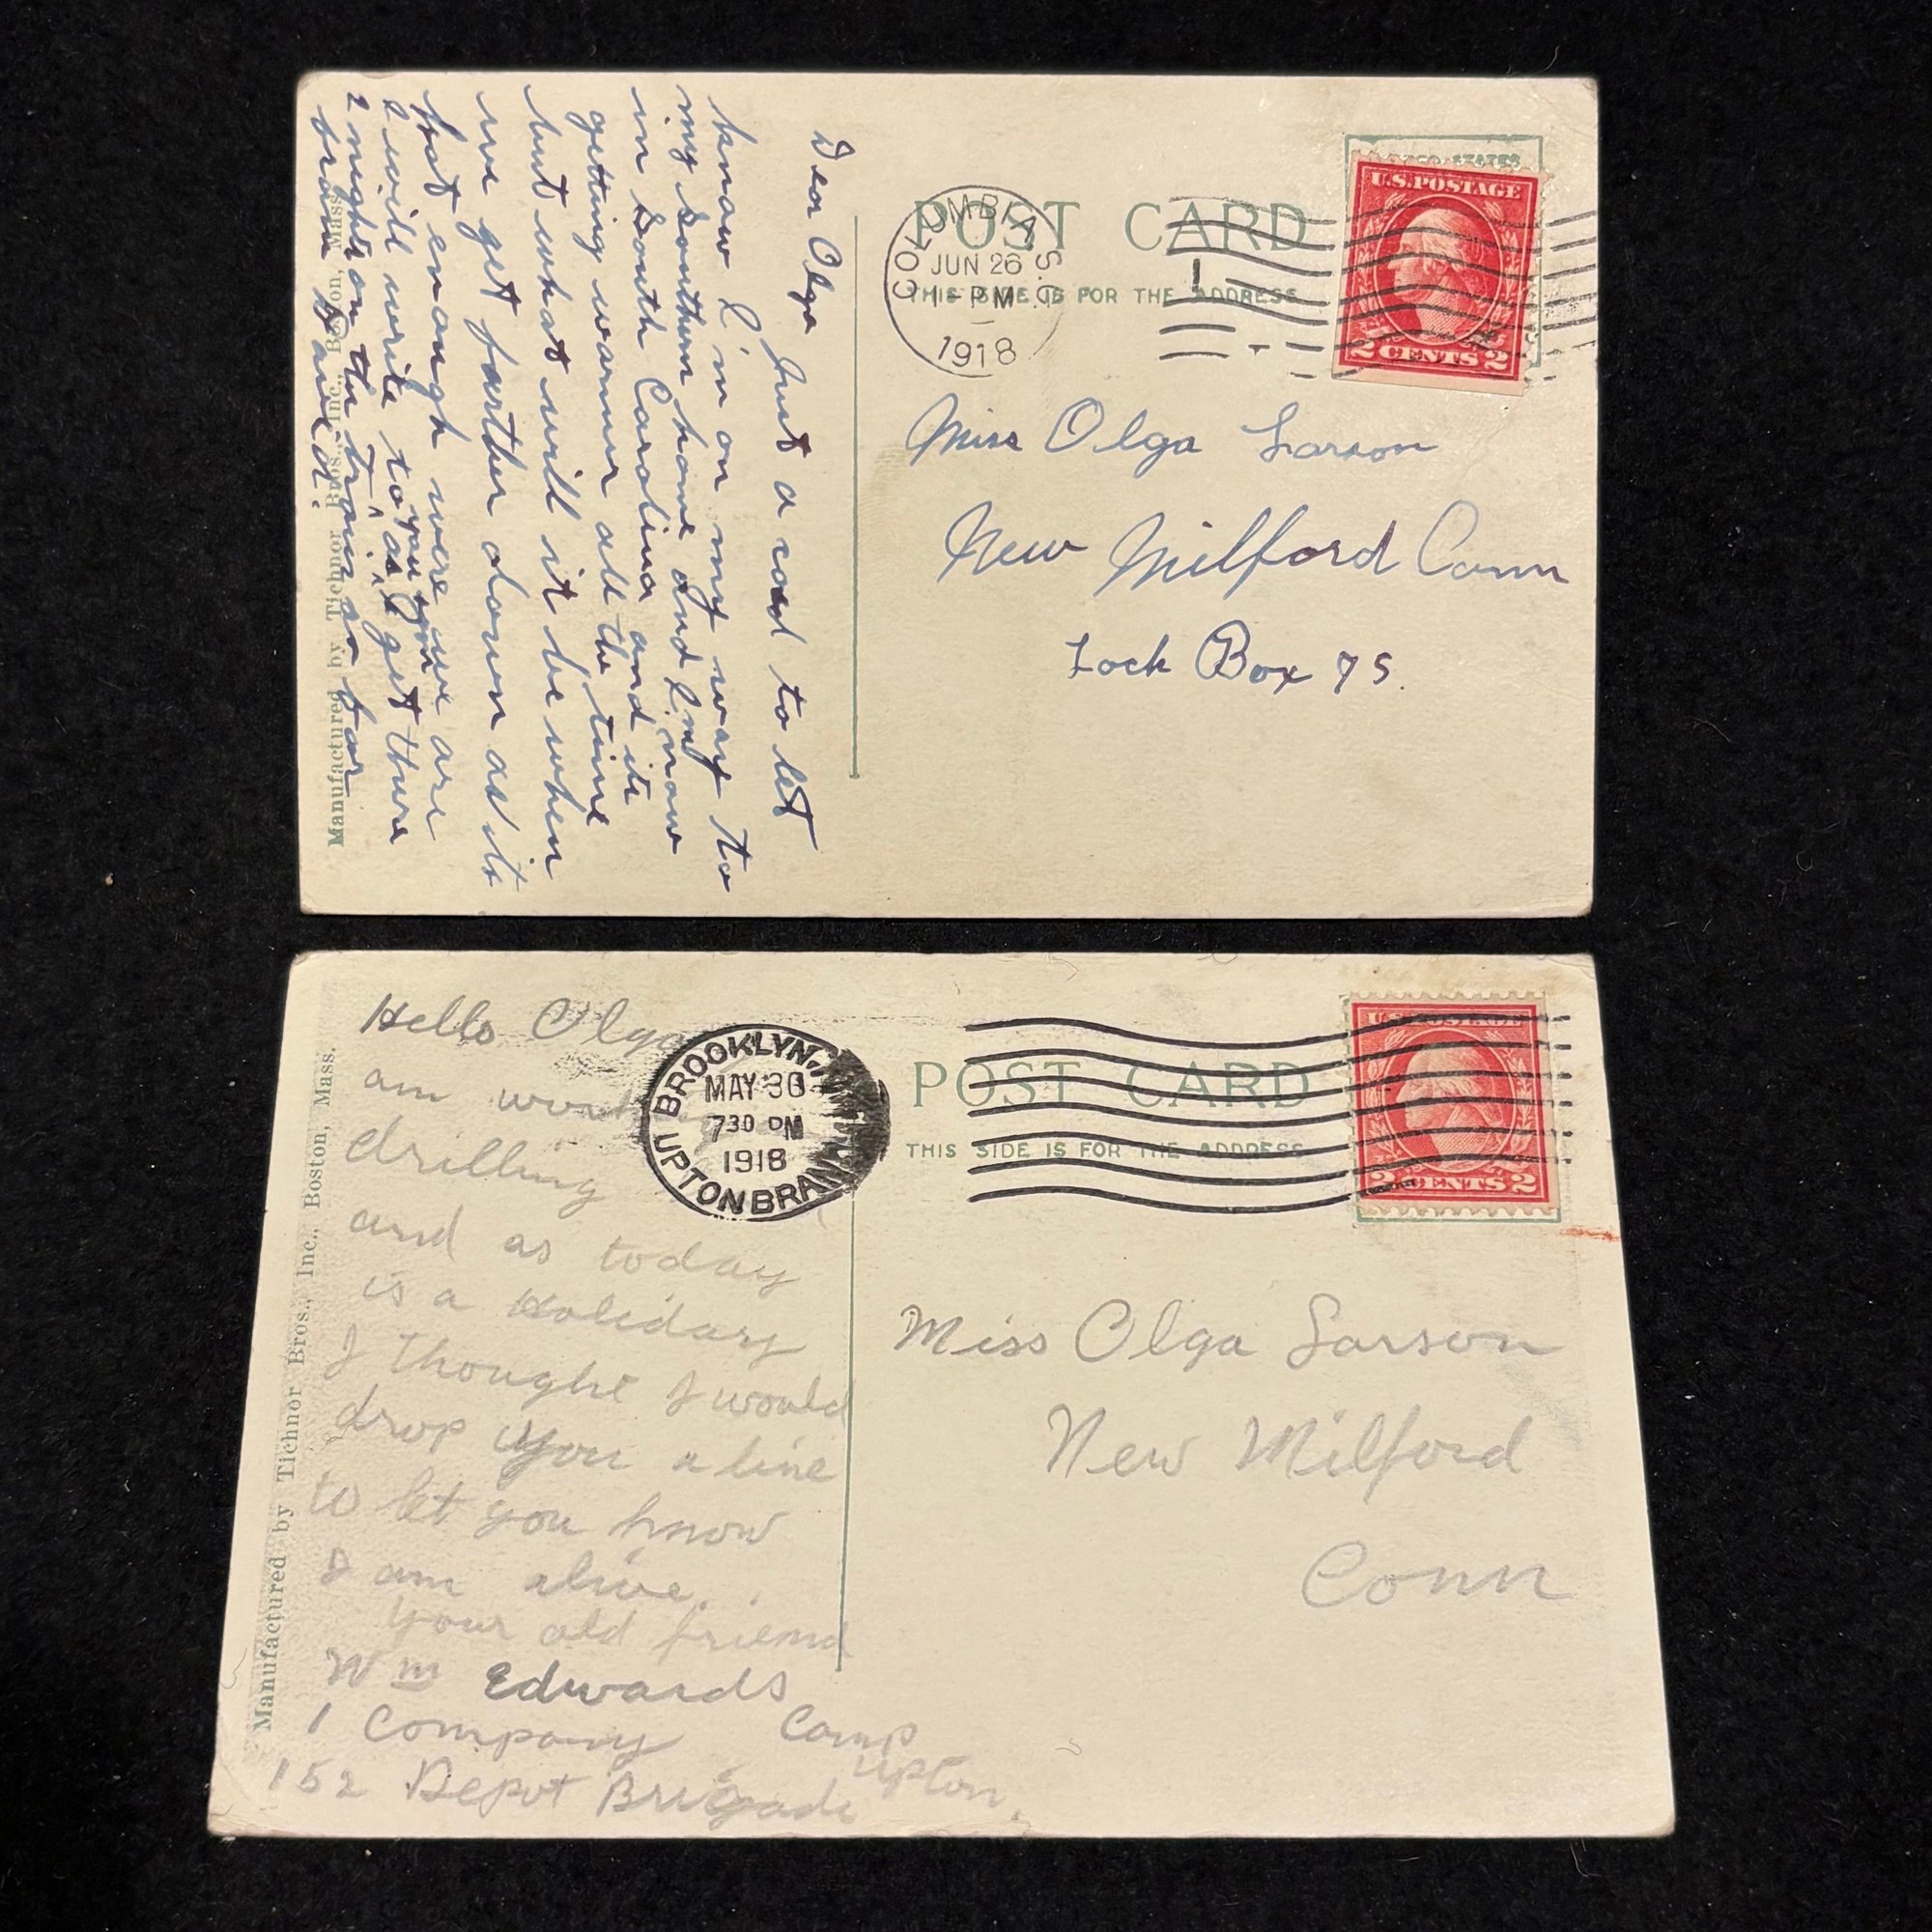 Dear Olga
Just a card to let
know I'm on my way to
my Southern home and I'm now
in South Carolina and its
getting warmer all the time
but what will it be when
we get farther down as its
hot enough were we are
I will write to you as I get there
2 nights on the train so far
Manufactured by Tichnor Bros., Inc., Boston, Mass.
UNITED STATES
U.S. POSTAGE
2 CENTS 2
POST CARD
THIS SIDE IS FOR THE ADDRESS
COLUMBIA, S.C.
JUN 26
1 - PM
1918
1
Miss Olga Larson
New Milford Conn
Lock Box 75.
Hello Olga
am
drilling
and as today
is a Holiday
I thought I would
drop you a line
to let you know
I am alive.
your old friend
Wm Edwards
1 Company Camp
152 Depot Brigade Upton.
Manufactured by Tichnor Bros., Inc., Boston, Mass.
BROOKLYN, N.Y.
MAY 30
7 30 PM
1918
UPTON BRANCH
POST CARD
THIS SIDE IS FOR THE ADDRESS
U.S. POSTAGE
2 CENTS 2
Miss Olga Larson
New Milford
Conn